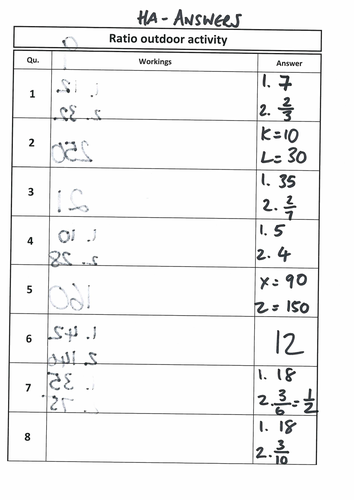 HA - ANSWERS
Ratio outdoor activity
Qu. Workings Answer
1 1. 7
2. 2/3
2 K=10
L=30
3 1. 35
2. 2/7
4 1. 5
2. 4
5 x = 90
z = 150
6 12
7 1. 18
2. 3/6 = 1/2
8 1. 18
2. 3/10